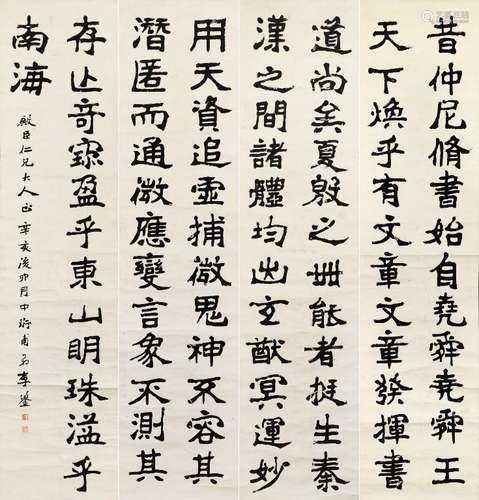 昔仲尼脩書始自堯舜堯舜王
天下煥乎有文章文章發揮書
道尚矣夏殷之世能者挺生秦
漢之間諸體均出玄猷冥運妙
用天資追虛捕微鬼神不容其
潛匿而通微應變言象不測其
存止奇寶盈乎東山明珠溢乎
南海
殿臣仁兄大人正 辛亥後卯月中珩甫弟李